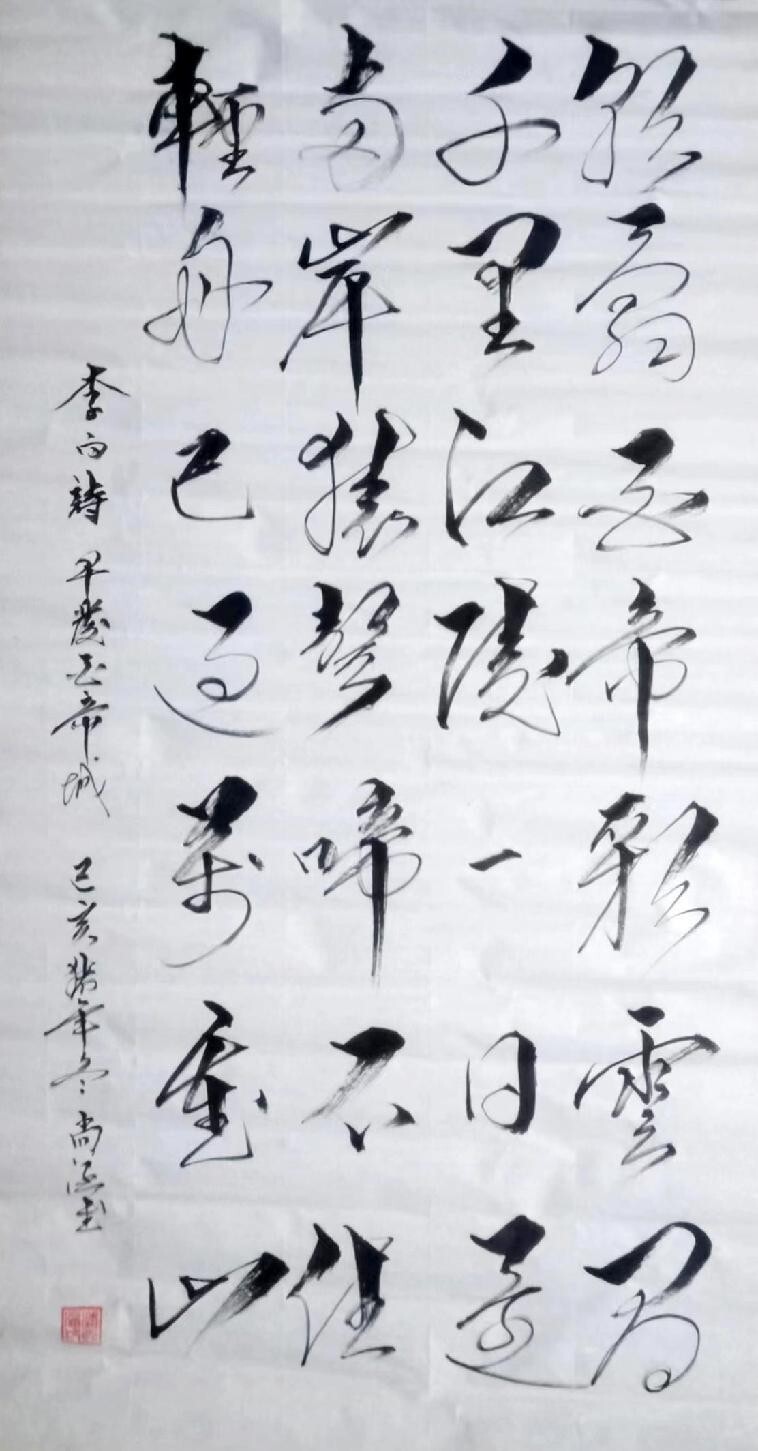 朝辭白帝彩雲間
千里江陵一日還
兩岸猿聲啼不住
輕舟已過萬重山
李白詩 早發白帝城 己亥猪年冬 尚